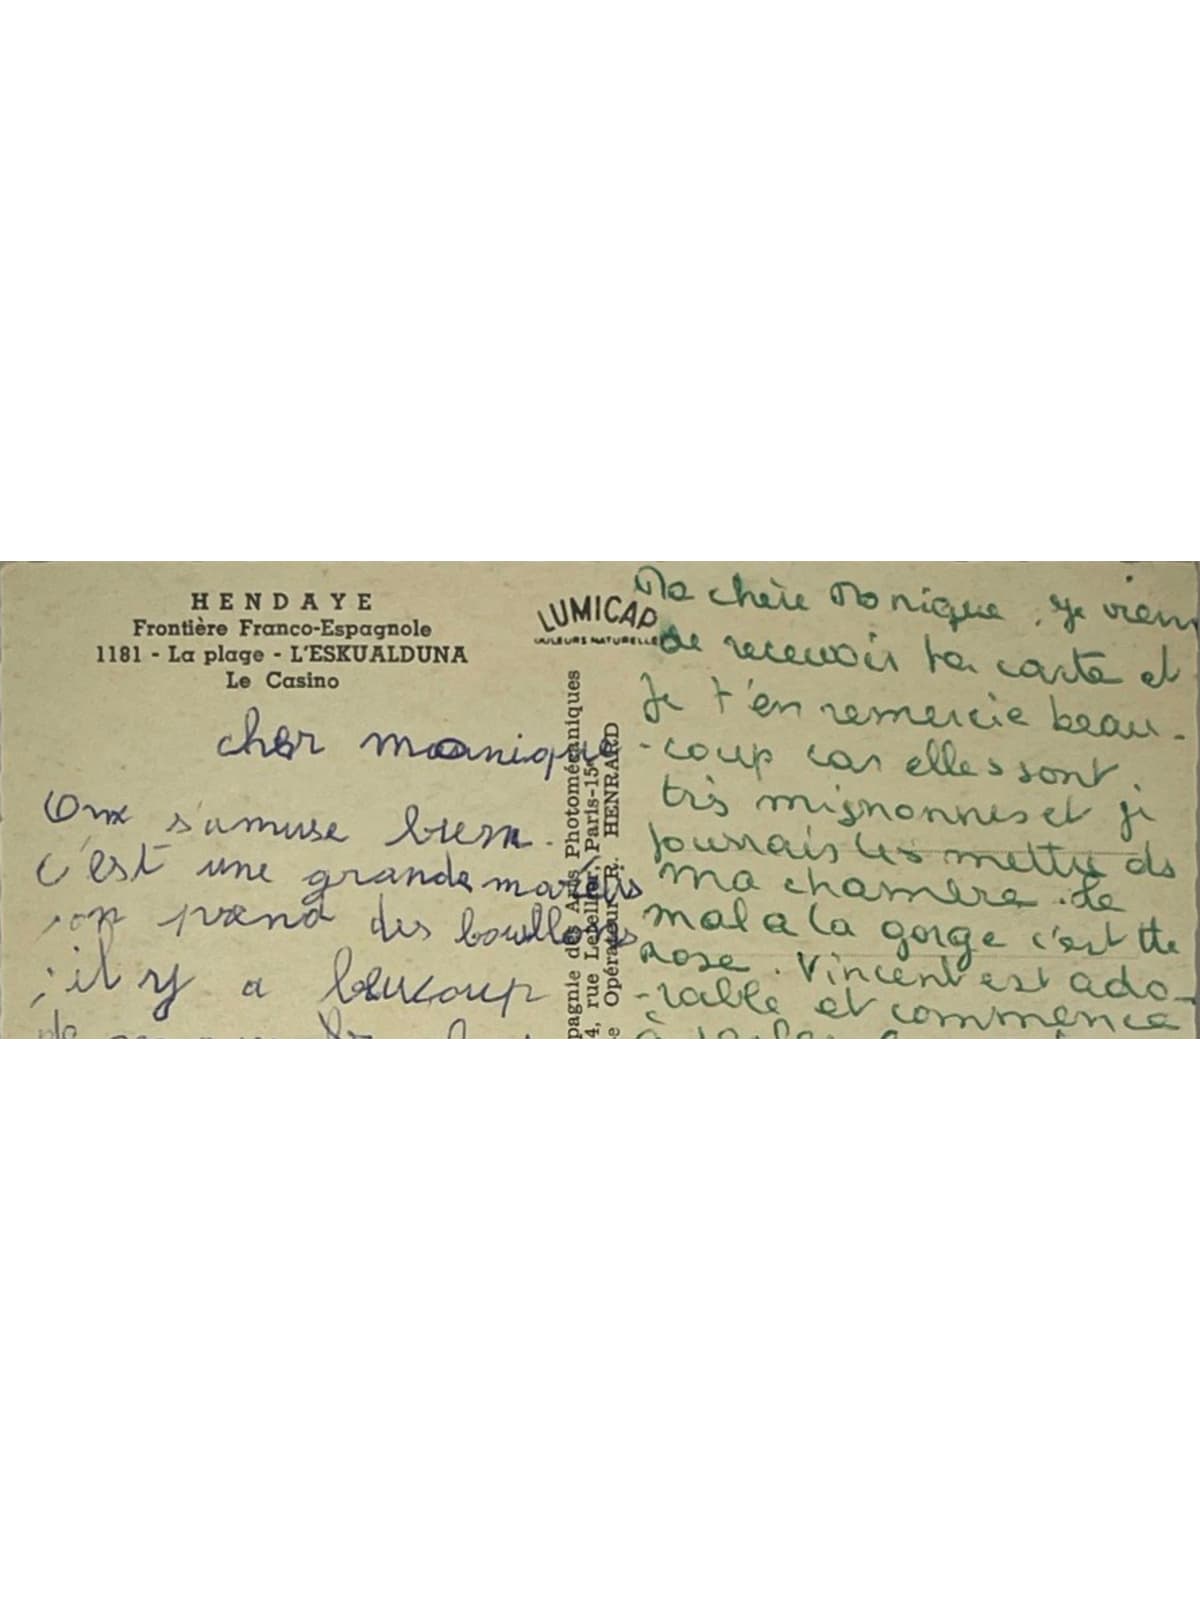 HENDAYE
Frontière Franco-Espagnole
1181 - La plage - L'ESKUALDUNA
Le Casino
cher monique
On s'amuse bien.
c'est une grande
on prend des
il y a beucoup
LUMICAP
COULEURS NATURELLES
pagnie des Arts Photomécaniques
4, rue Lebellier, Paris-15e
e Opérateur R. HENRARD
Ma chère Monique. Je viens
de recevoir ta carte et
Je t'en remercie beau-
-coup car elles sont
très mignonnes et je
pourrais les mettre ds
ma chambre. Le
mal a la gorge c'est tte
rose. Vincent est ado-
-rable et commence
à